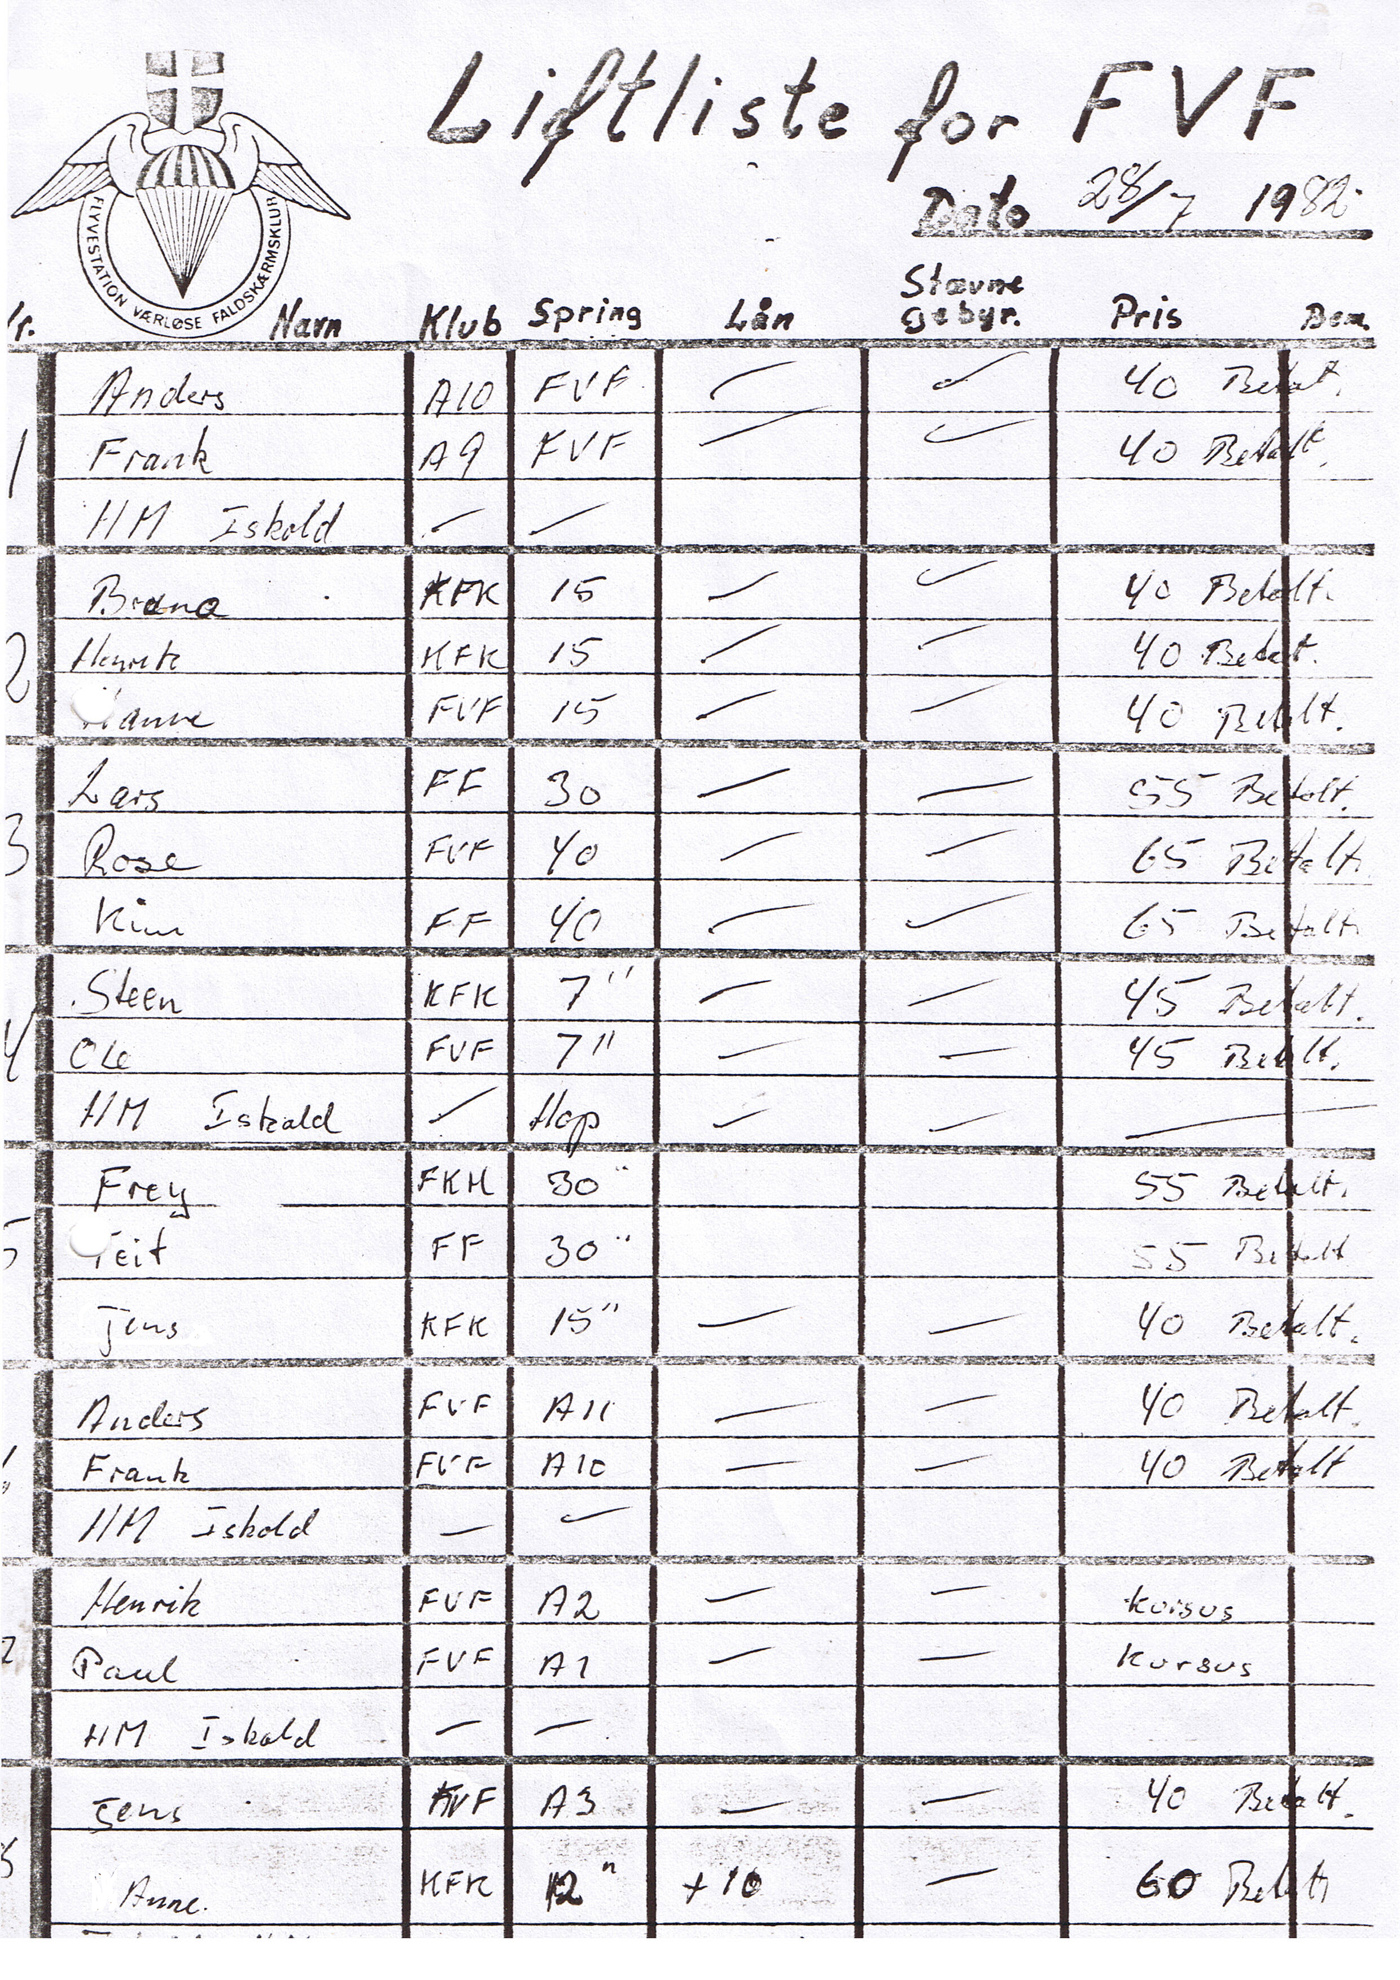 Liftliste for FVF
Dato 28/7 1982
FLYVESTATION VÆRLØSE FALDSKÆRMSKLUB
Nr. Navn Klub Spring Lån Stævne gebyr. Pris Bem.
Anders A10 FVF 40 Betalt.
1 Frank A9 FVF 40 Betalt.
HM Iskold
KFK 15 40 Betalt.
2 Henrik KFK 15 40 Betalt.
Hanne FVF 15 40 Betalt.
Lars FF 30 55 Betalt.
3 Rose FVF 40 65 Betalt.
Kim FF 40 65 Betalt.
Steen KFK 7" 45 Betalt.
4 Ole FVF 7" 45 Betalt.
HM Iskold Hop
Frey FKH 30" 55 Betalt.
5 Teit FF 30" 55 Betalt
Jens KFK 15" 40 Betalt.
Anders FVF A11 40 Betalt.
6 Frank FVF A10 40 Betalt
HM Iskold
Henrik FVF A2 kursus
7 Paul FVF A1 kursus
HM Iskold
Jens FVF A3 40 Betalt.
Anne. KFK 12" +10 60 Betalt